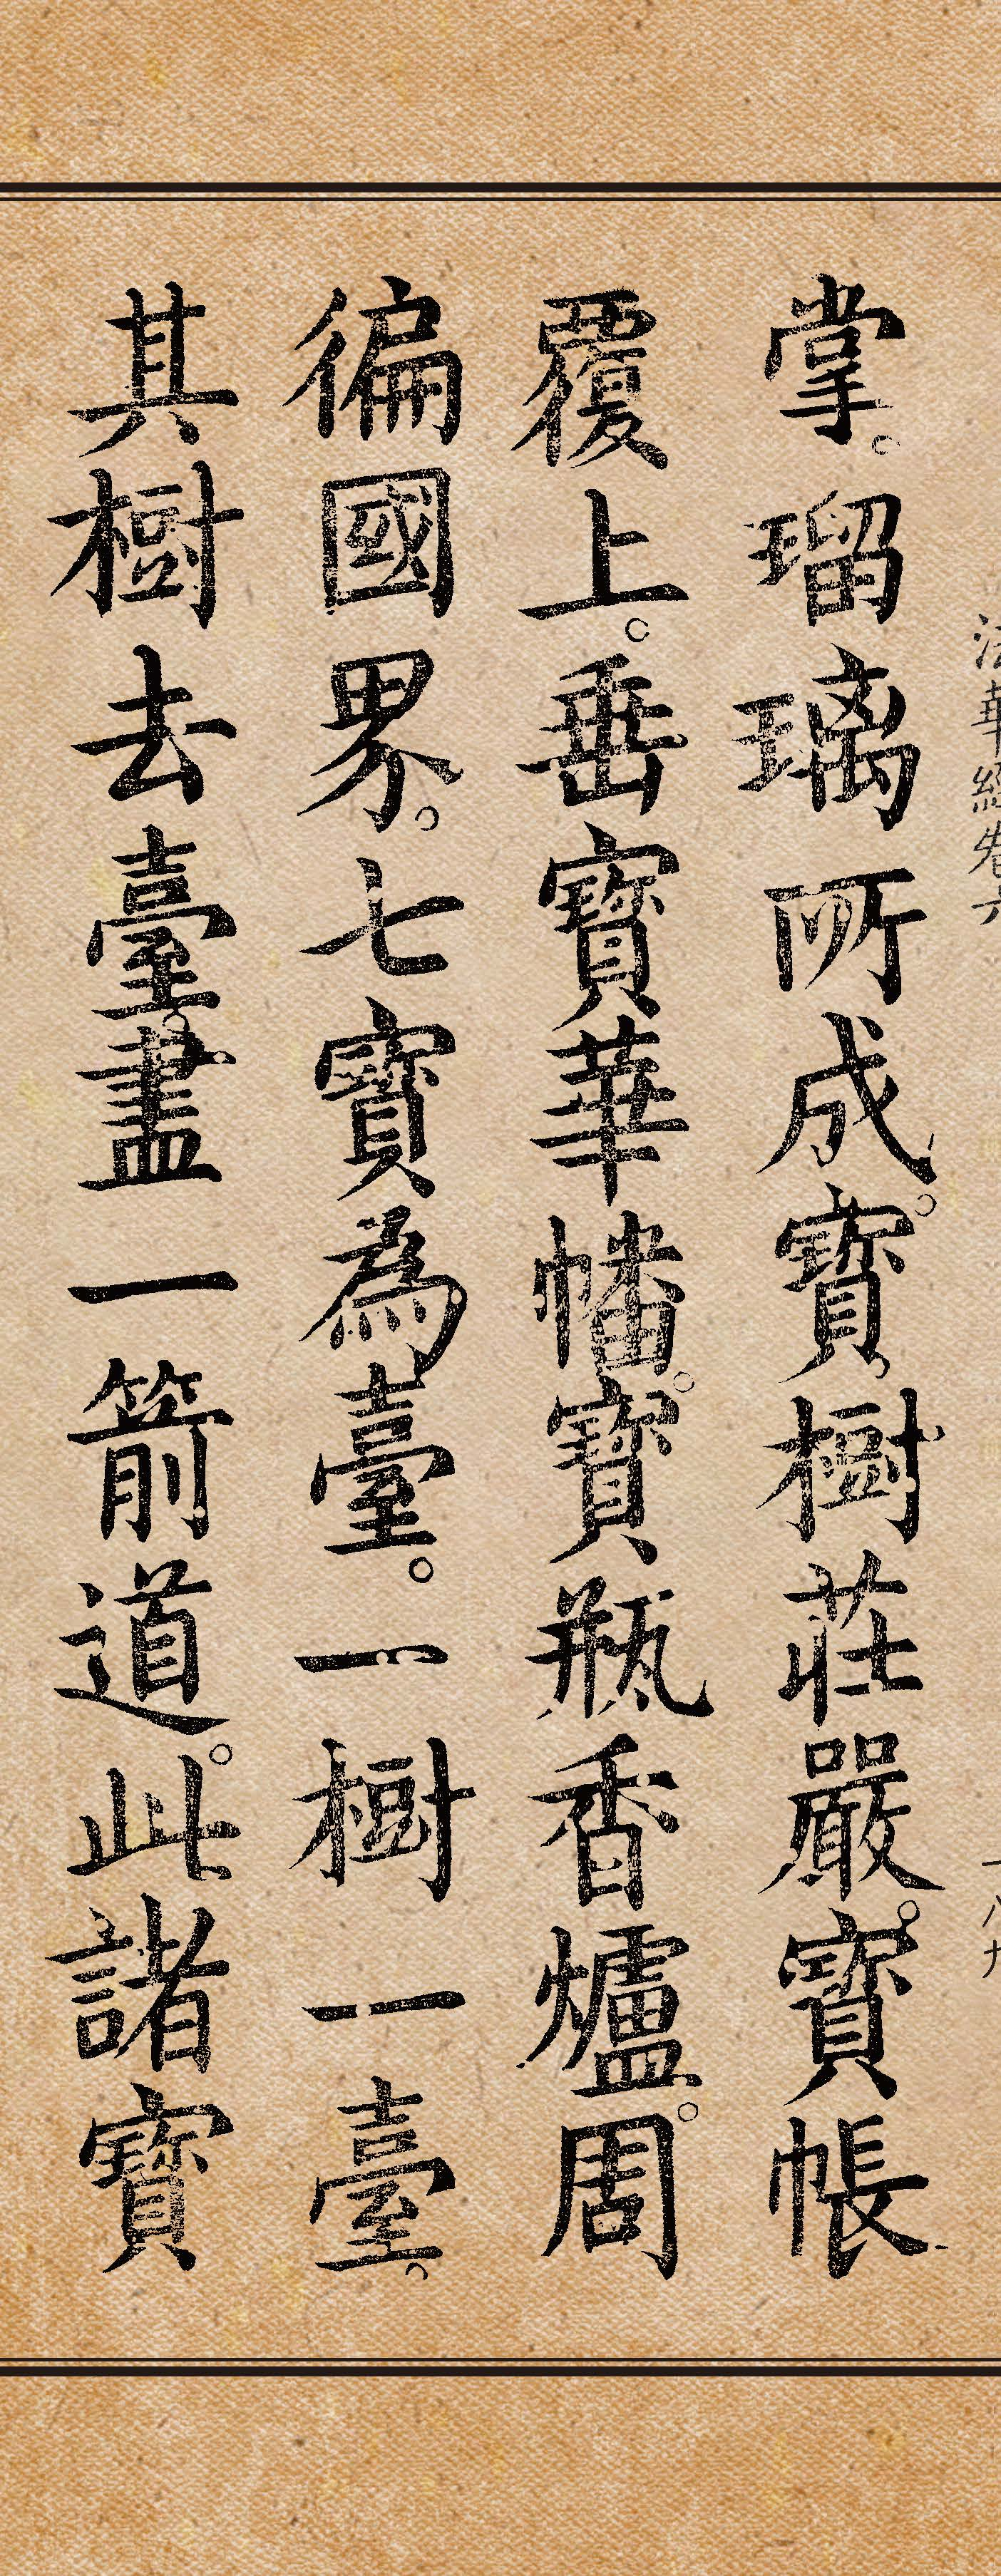 法華經卷六
一八九
掌。瑠璃所成。寶樹莊嚴。寶帳
覆上。垂寶華幡。寶瓶香爐。周
徧國界。七寶為臺。一樹一臺。
其樹去臺。盡一箭道。此諸寶